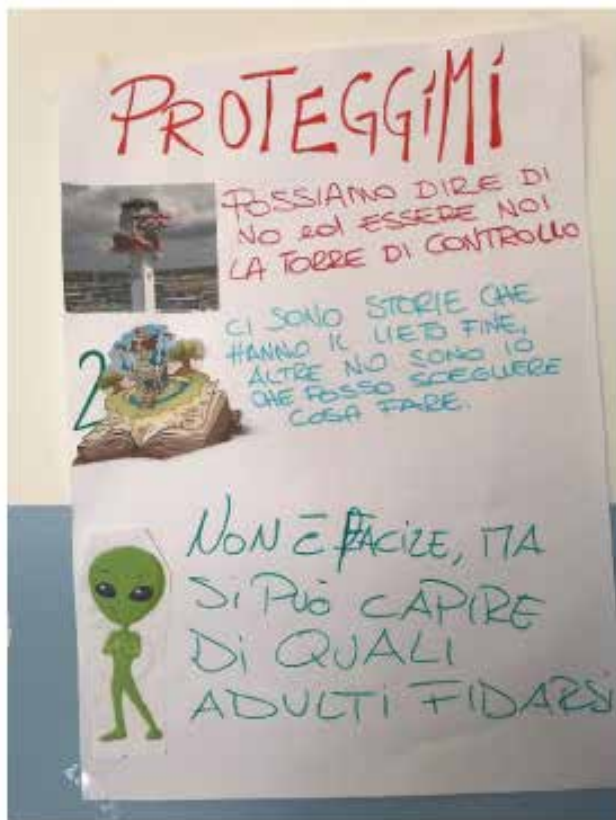 PROTEGGIMI
POSSIAMO DIRE DI
NO ed ESSERE NOI
LA TORRE DI CONTROLLO
2
CI SONO STORIE CHE
HANNO IL LIETO FINE,
ALTRE NO SONO IO
CHE POSSO SCEGLIERE
COSA FARE.
NON È FACILE, MA
Si PUÒ CAPIRE
Di QUALI
ADULTI FIDARSi